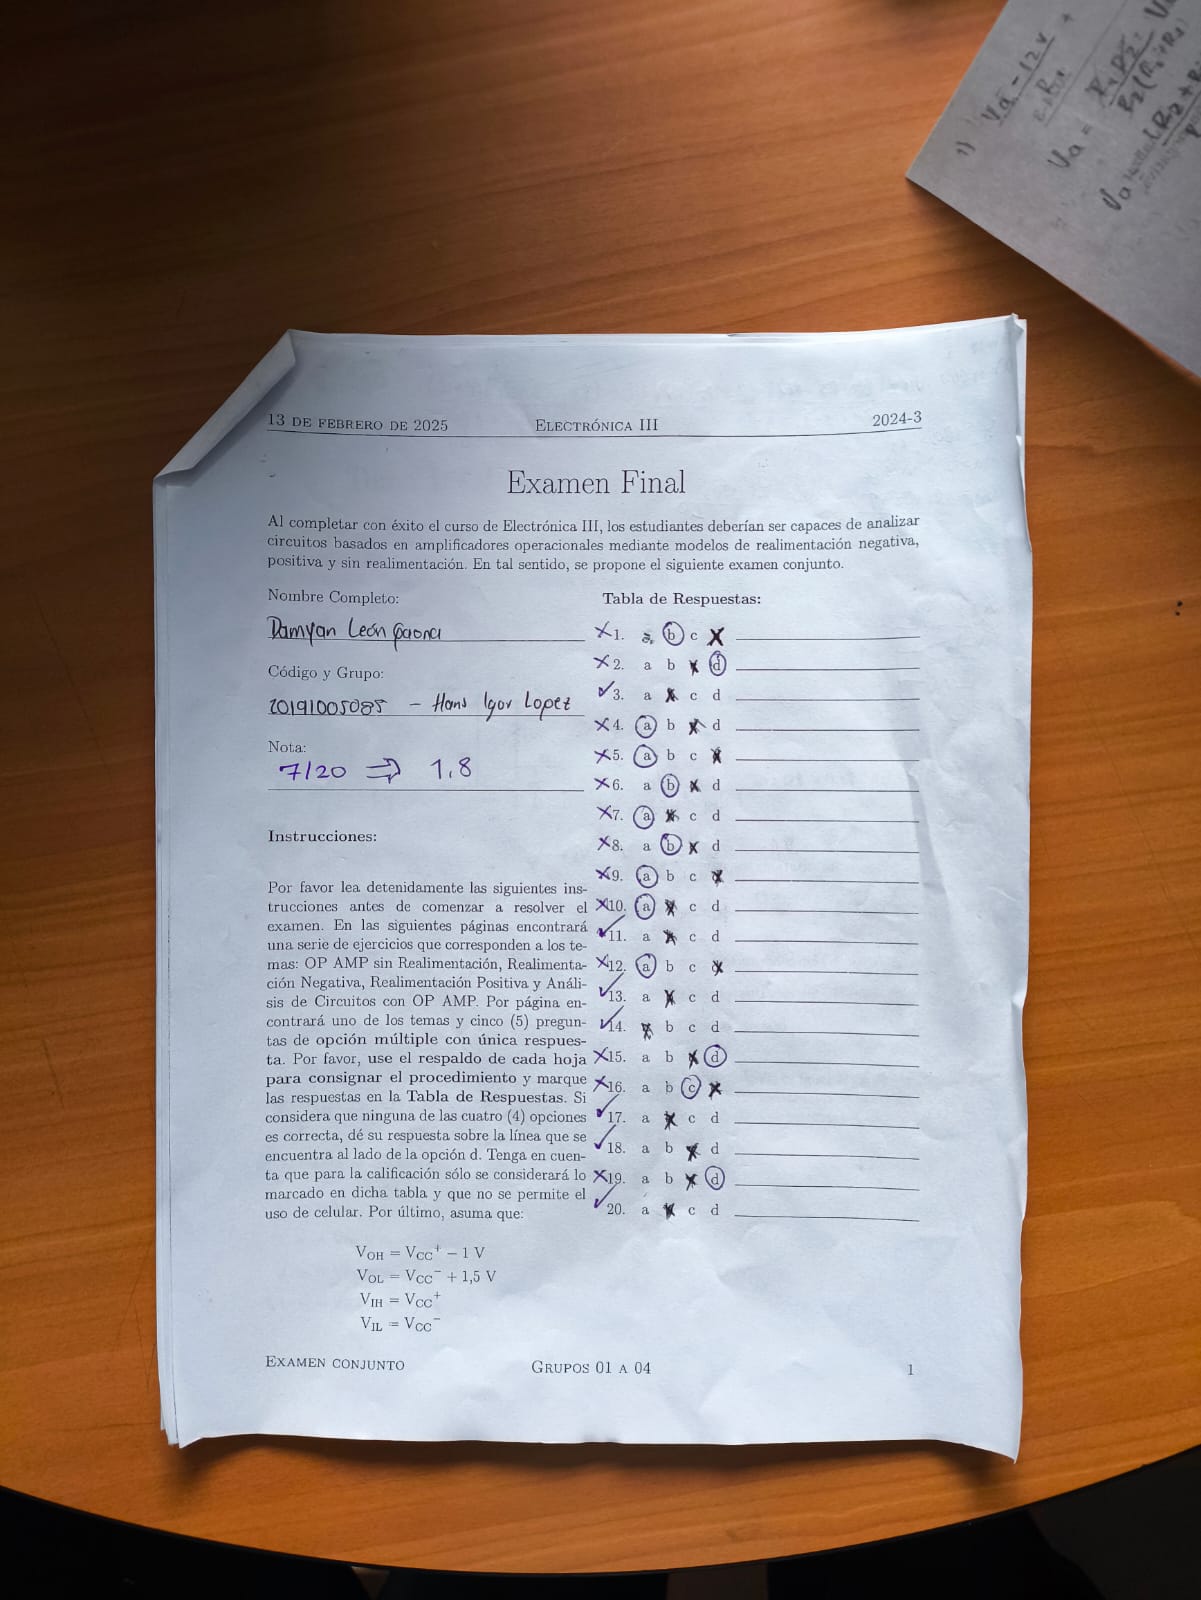 13 DE FEBRERO DE 2025 ELECTRÓNICA III 2024-3
Examen Final
Al completar con éxito el curso de Electrónica III, los estudiantes deberían ser capaces de analizar
circuitos basados en amplificadores operacionales mediante modelos de realimentación negativa,
positiva y sin realimentación. En tal sentido, se propone el siguiente examen conjunto.
Nombre Completo:
Damyan León Gaona
Código y Grupo:
20191005085 - Hans Igor Lopez
Nota:
7/20 ⇒ 1,8
Instrucciones:
Por favor lea detenidamente las siguientes ins-
trucciones antes de comenzar a resolver el
examen. En las siguientes páginas encontrará
una serie de ejercicios que corresponden a los te-
mas: OP AMP sin Realimentación, Realimenta-
ción Negativa, Realimentación Positiva y Análi-
sis de Circuitos con OP AMP. Por página en-
contrará uno de los temas y cinco (5) pregun-
tas de opción múltiple con única respues-
ta. Por favor, use el respaldo de cada hoja
para consignar el procedimiento y marque
las respuestas en la Tabla de Respuestas. Si
considera que ninguna de las cuatro (4) opciones
es correcta, dé su respuesta sobre la línea que se
encuentra al lado de la opción d. Tenga en cuen-
ta que para la calificación sólo se considerará lo
marcado en dicha tabla y que no se permite el
uso de celular. Por último, asuma que:
V_OH = V_CC⁺ − 1 V
V_OL = V_CC⁻ + 1,5 V
V_IH = V_CC⁺
V_IL = V_CC⁻
Tabla de Respuestas:
✗ 1. a b c ✗
✗ 2. a b ✗ d
✓ 3. a ✗ c d
✗ 4. a b ✗ d
✗ 5. a b c ✗
✗ 6. a b ✗ d
✗ 7. a ✗ c d
✗ 8. a b ✗ d
✗ 9. a b c ✗
✗ 10. a ✗ c d
✓ 11. a ✗ c d
✗ 12. a b c ✗
✓ 13. a ✗ c d
✓ 14. ✗ b c d
✗ 15. a b ✗ d
✗ 16. a b c ✗
✓ 17. a ✗ c d
✓ 18. a b ✗ d
✗ 19. a b ✗ d
✓ 20. a ✗ c d
EXAMEN CONJUNTO GRUPOS 01 A 04 1
1) Va - 12v +
Va =
Va